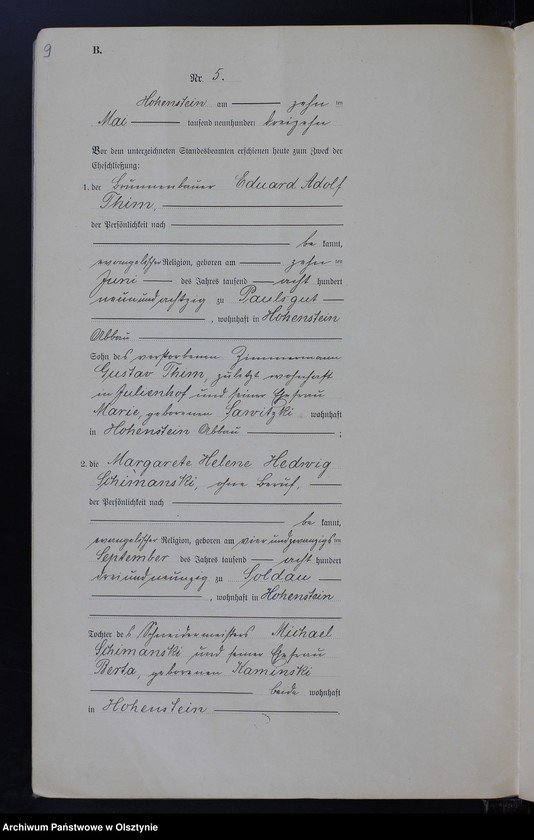 9
B.
Nr. 5.
Hohenstein am zehnten
Mai tausend neunhundert dreizehn
Vor dem unterzeichneten Standesbeamten erschienen heute zum Zweck der
Eheschließung:
1. der Brunnenbauer Eduard Adolf
Thim,
der Persönlichkeit nach
be kannt,
evangelischer Religion, geboren am zehnten
Juni des Jahres tausend acht hundert
neunundachtzig zu Paulsgut
, wohnhaft in Hohenstein
Abbau
Sohn des verstorbenen Zimmermann
Gustav Thim, zuletzt wohnhaft
in Julienhof und seiner Ehefrau
Marie, geborenen Sawitzki wohnhaft
in Hohenstein, Abbau ;
2. die Margarete Helene Hedwig
Schimanski, ohne Beruf,
der Persönlichkeit nach
be kannt,
evangelischer Religion, geboren am vierundzwanzigsten
September des Jahres tausend acht hundert
dreiundneunzig zu Soldau
, wohnhaft in Hohenstein
Tochter des Schneidermeisters Michael
Schimanski und seiner Ehefrau
Berta, geborenen Kaminski
beide wohnhaft
in Hohenstein
Archiwum Państwowe w Olsztynie